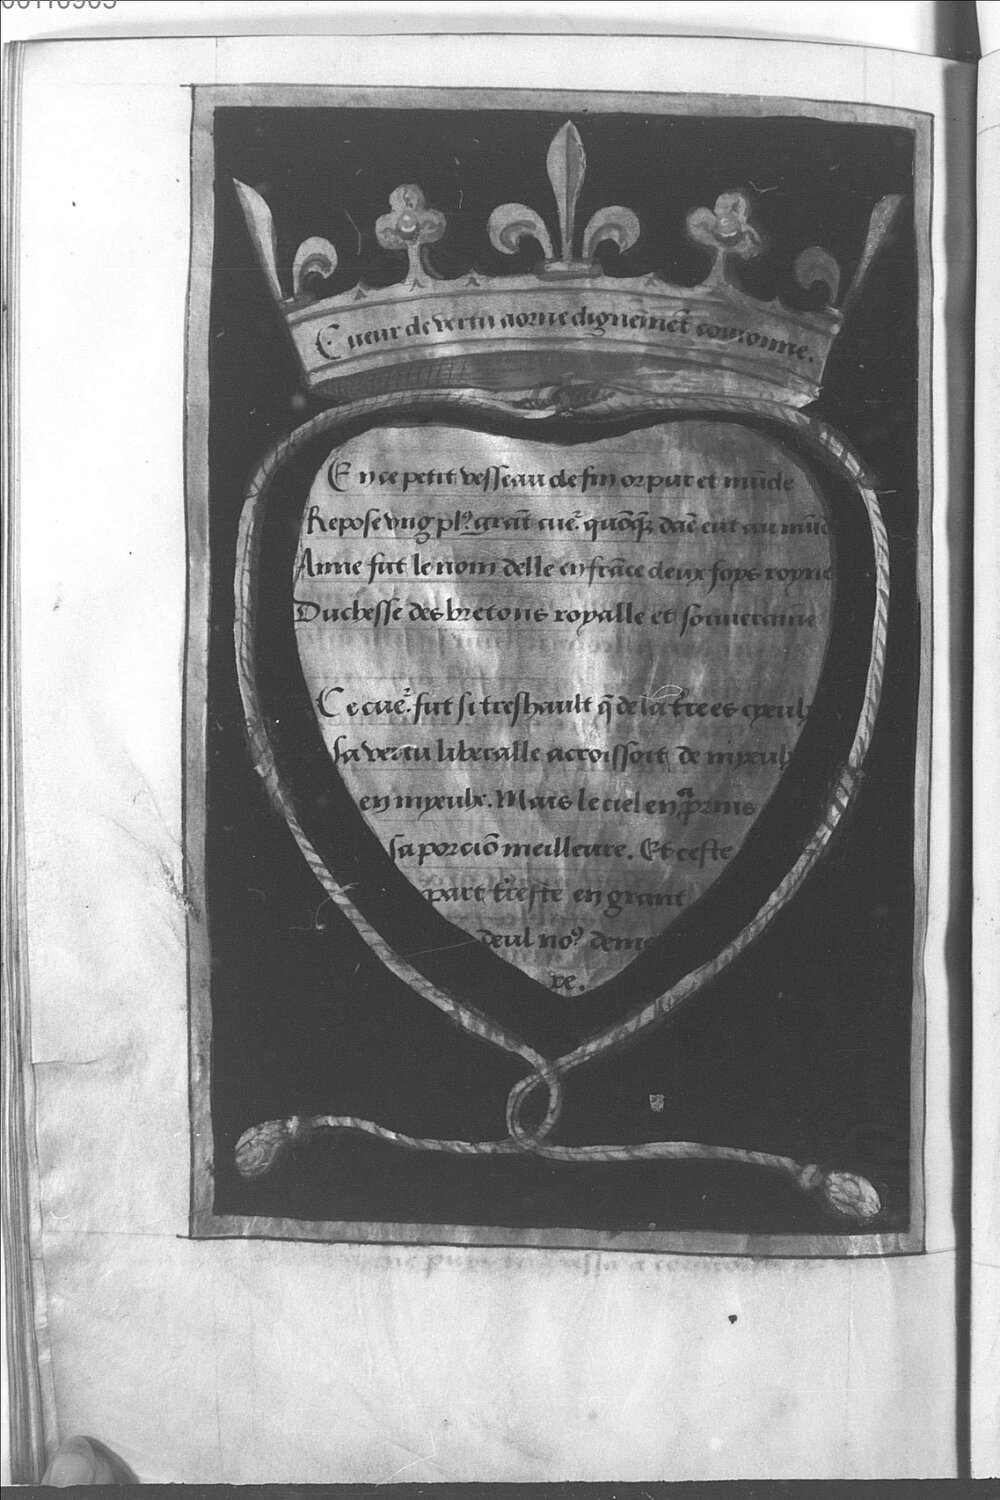 Cueur de vertu aorne dignemẽt couronne.
En ce petit vesseau de fin or pur et mũde
Repose ung plꝰ grãt cue͛. quõqȝ dãe eut au mũd
Anne fut le nom delle en frãce deux foys royne
Duchesse des bretons royalle et souueraine
Ce cue͛. fut si treshault q̃ de la tr̃e es cyeulx
Sa vertu liberalle accroissoit de myeulx
en myeulx. Mais le ciel en a prins
sa porciõ meilleure. Et ceste
part tr̃estre en grant
deul noꝰ demeu
re.